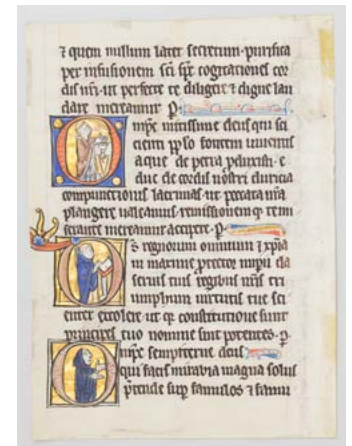 ⁊ quem nullum latet secretum. purifica
per infusionem sci sps cogitationes cor
dis nri. ut perfecte te diligere ⁊ digne lau
dare mereamur P.
Omps mitissime deus qui si
cienti pplo fontem viventis
aque de petra pduxisti. e
duc de cordis nostri duricia
compunctionis lacrimas. ut peccata nra
plangere valeamus. remissionemq; te mi
serante mereamur accipere. P.
Ds regnorum omnium ⁊ xpia
ni maxime ptector impii da
servis tuis regibus nris tri
umphum virtutis tue sci
enter excolere. ut q constitutione sunt
principes. tuo nomine sint potentes. P.
Omps sempiterne deus
qui facis mirabilia magna solus
ptende sup famulos ⁊ famu